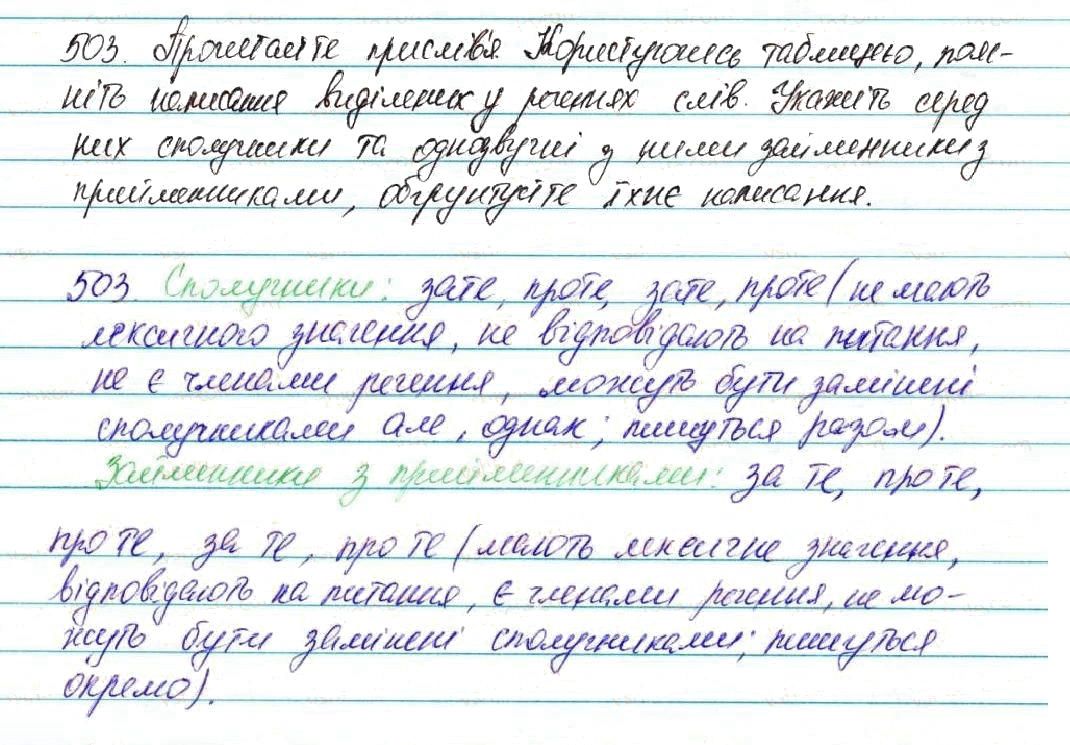 503. Прочитайте прислів'я. Користуючись таблицею, пояс-
ніть написання виділених у реченнях слів. Укажіть серед
них сполучники та однозвучні з ними займенники з
прийменниками, обґрунтуйте їхнє написання.
503. Сполучники: зате, проте, зате, проте (не мають
лексичного значення, не відповідають на питання,
не є членами речення, можуть бути замінені
сполучниками але, однак; пишуться разом).
Займенники з прийменниками: за те, про те,
про те, за те, про те (мають лексичне значення,
відповідають на питання, є членами речення, не мо-
жуть бути замінені сполучниками; пишуться
окремо).